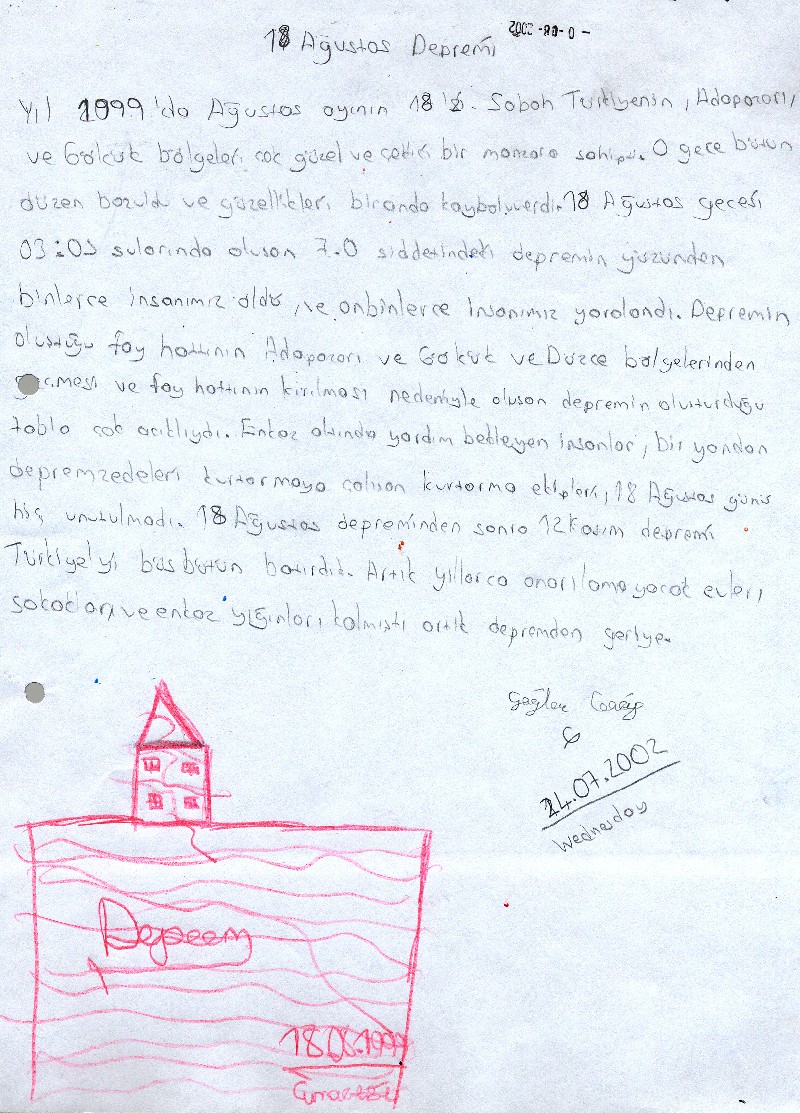 18 Ağustos Depremi
Yıl 1999'da Ağustos ayının 18 Sabah Türkiyenin, Adapazarı,
ve Gölcük bölgeleri çok güzel ve çekici bir manzara sahipti. O gece bütün
düzen bozuldu ve güzellikleri biranda kayboluverdi. 18 Ağustos gecesi
03:05 sularında oluşan 7.0 şiddetindeki depremin yüzünden
binlerce insanımız öldü, ve onbinlerce insanımız yaralandı. Depremin
oluştuğu fay hattının Adapazarı ve Gölcük ve Düzce bölgelerinden
geçmesi ve fay hattının kırılması nedeniyle oluşan depremin oluşturduğu
tablo çok acıklıydı. Enkaz altında yardım bekleyen insanlar, bir yandan
depremzedeleri kurtarmaya çalışan kurtarma ekipleri, 18 Ağustos günü
hiç unutulmadı. 18 Ağustos depreminden sonra 12 Kasım depremi
Türkiye'yi büsbütün batırdı. Artık yıllarca onarılamayacak evleri
sokakları, ve enkaz yığınları kalmıştı artık depremden geriye.
24.07.2002
Wednesday
Deprem
18.08.1999